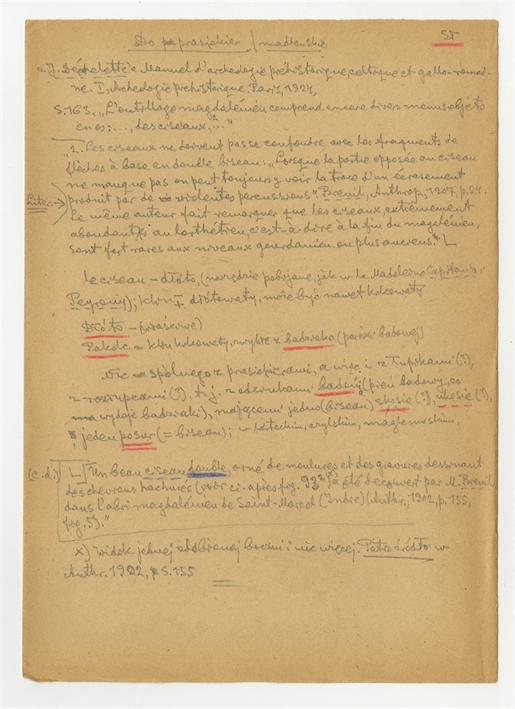 Do prasiekier / madleńskie
ST
a. J. Déchelette'a Manuel d'archéologie préhistorique, celtique et gallo-romai-
ne. I, Archéologie préhistorique. Paris, 1924,
S. 163, „L'outillage magdalénien comprend encore divers menus objets
en os: ..., des ciseaux,² ..."
"2. Les ciseaux ne doivent pas se confondre avec les fragments de
flèches à base en double biseau: „Lorsque la partie opposée au ciseau
ne manque pas on peut toujours y voir la trace d'un écrasement
produit par de violentes percussions". Breuil, Anthrop, 1907, p. 24.
Le même auteur fait remarquer que les ciseaux, extrêmement
abondants au lorthétien, c'est-à-dire à la fin du magdalénien,
sont fort rares aux niveaux gourdanien ou plus anciens." L
le ciseau – dłóto, (narzędzie pobijane, jak w la Madeleine Capitana i
Peyrony); klin I dłótowaty, może być nawet kołkowaty
Dłóto –
Pakołc = klin kołkowaty, zwykle z
Nic – spólnego z prasiekierami, a więc i z Tupikami (?),
z rozrypcami (?), t. j. z odzinkami badoij (pieu badowy, co
ma wydoje badziaki), mającemi jedno (biseau) skosie (?), ukosie (?),
jeden posur (= biseau); azylskim, maglemoskim.
(c. d.) L Un beau ciseau double, orné de moulures et des gravures dessinant
des chevrons hachurés (voir ci-après fig. 93²ˣ) a été découvert par M. Breuil
dans l'abri magdalénien de Saint-Marcel (Indre) (Anthr., 1902, p. 155,
fig. 5)."
x) widok jednej zdobionej boczni i nic więcej. Patrz źródło w
Anthr. 1902, S. 155